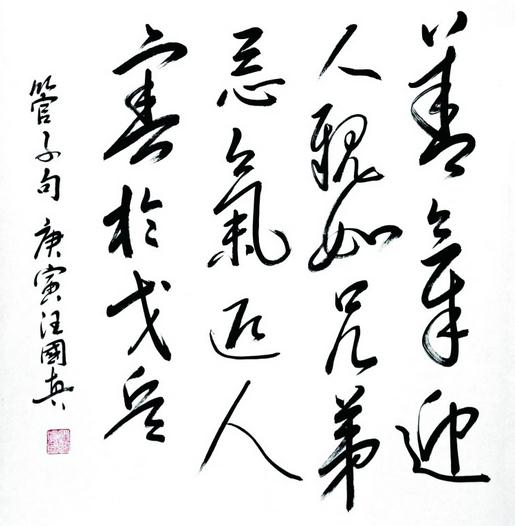 善氣迎
人親如兄弟
忌氣近人
害於戈兵
管子句 庚寅汪國真